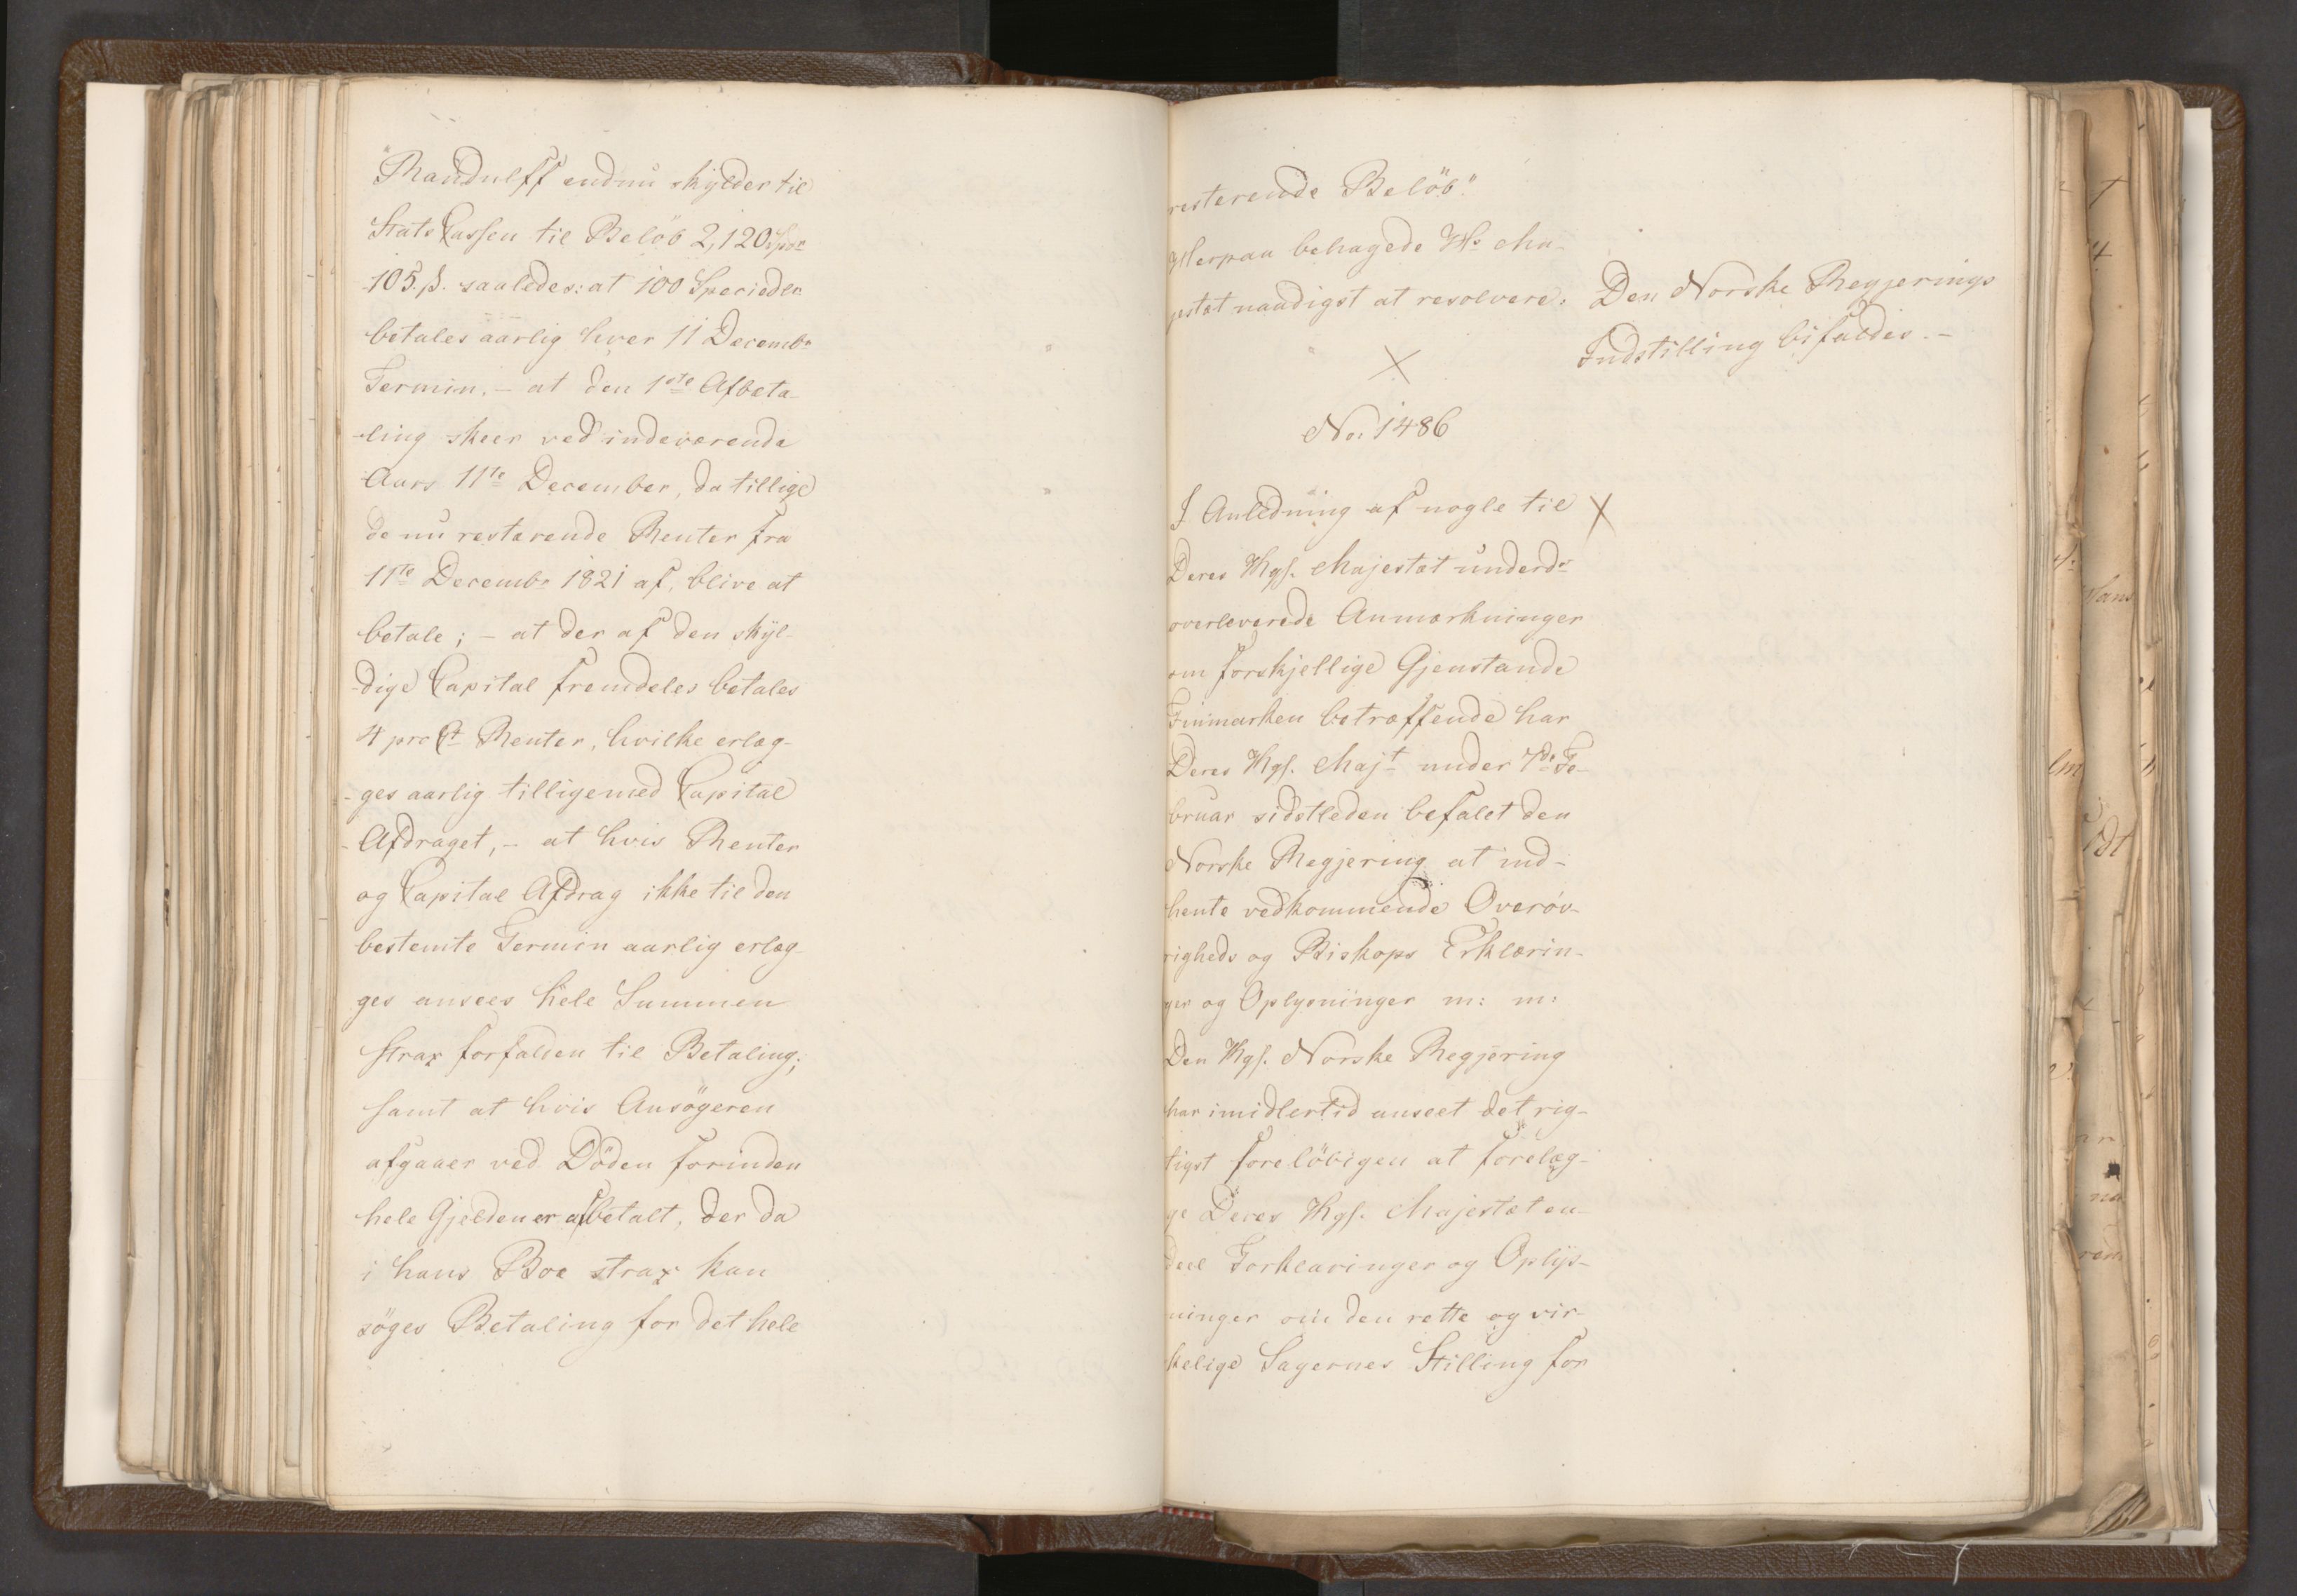 "Randulff endnu skylder til
Stats Cassen til Beløb 2,120 Spdr
105 s. saaledes: at 100 Speciedlr
betales aarlig hver 11 Decembr
Termin. – at den 1ste Afbeta-
ling skeer ved indeværende
Aars 11te December, da tillige
de nu resterende Renter fra
11te Decembr 1821 af, blive at
betale; – at der af den skyl-
dige Capital fremdeles betales
4 pro Ct Renter, hvilke erlæg-
ges aarlig tilligemed Capital
Afdraget, – at hvis Renter
og Capital Afdrag ikke til den
bestemte Termin aarlig erlæg-
ges ansees hele Summen
strax forfalden til Betaling;
samt at hvis Ansögeren
afgaaer ved Döden forinden
hele Gjelden er afbetalt, der da
i hans Boe strax kan
söges Betaling for det hele
resterende Belöb."
Herpaa behagede Hs Ma-
jestæt naadigst at resolvere:
Den Norske Regjerings
Indstilling bifaldes. –
X
No. 1486
I Anledning af nogle til X
Deres Kgs. Majestæt underdr
overleverede Anmærkninger
om forskjellige Gjenstande
Finmarken betræffende har
Deres Kgs. Majt under 7de Fe-
bruar sidstleden befalet den
Norske Regjering at ind-
hente vedkommende Overøv-
righeds og Biskops Erklærin-
ger og Oplysninger m: m:
Den Kgs. Norske Regjering
har imidlertid anseet det rig-
tigst forelöbigen at forelæg-
ge Deres Kgs. Majestæt en-
deel Forklaringer og Oplys-
ninger om den rette og vir-
kelige Sagernes Stilling for